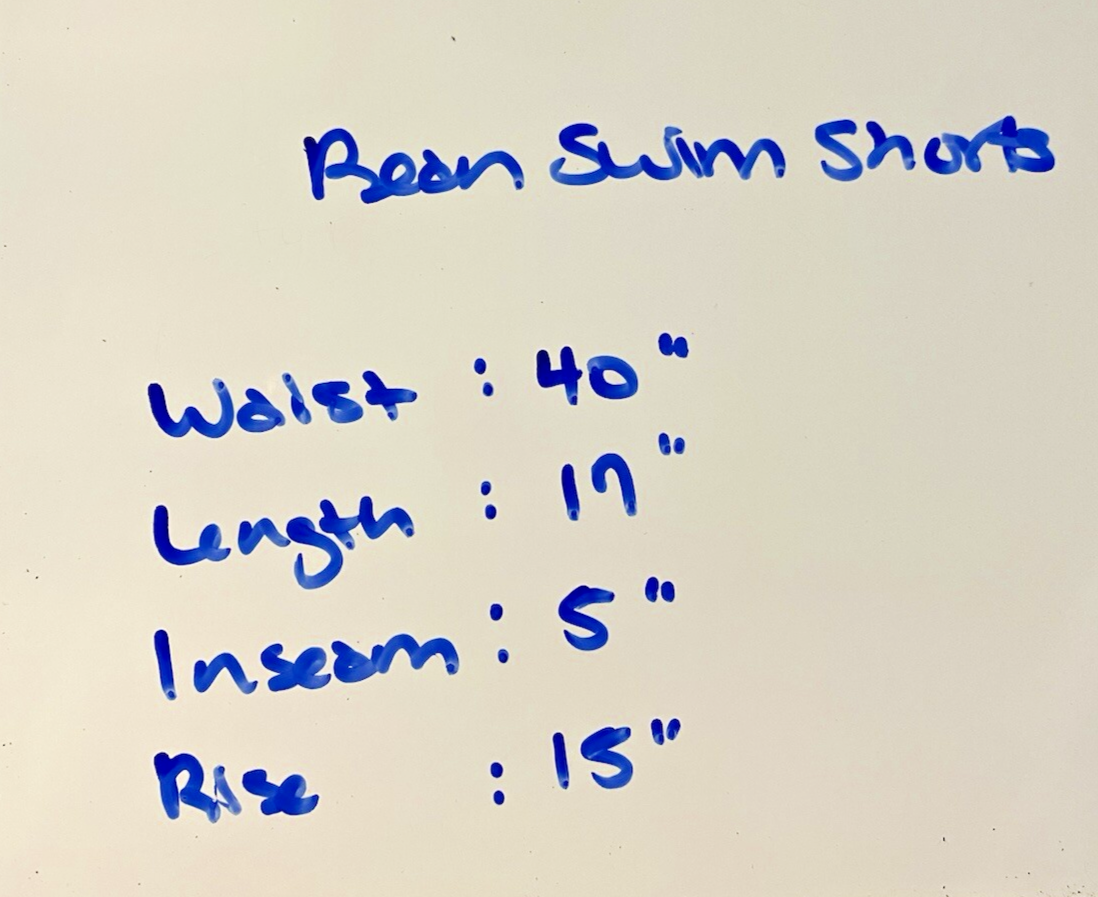 Bean Swim Shorts
Waist : 40"
Length : 17"
Inseam : 5"
Rise : 15"